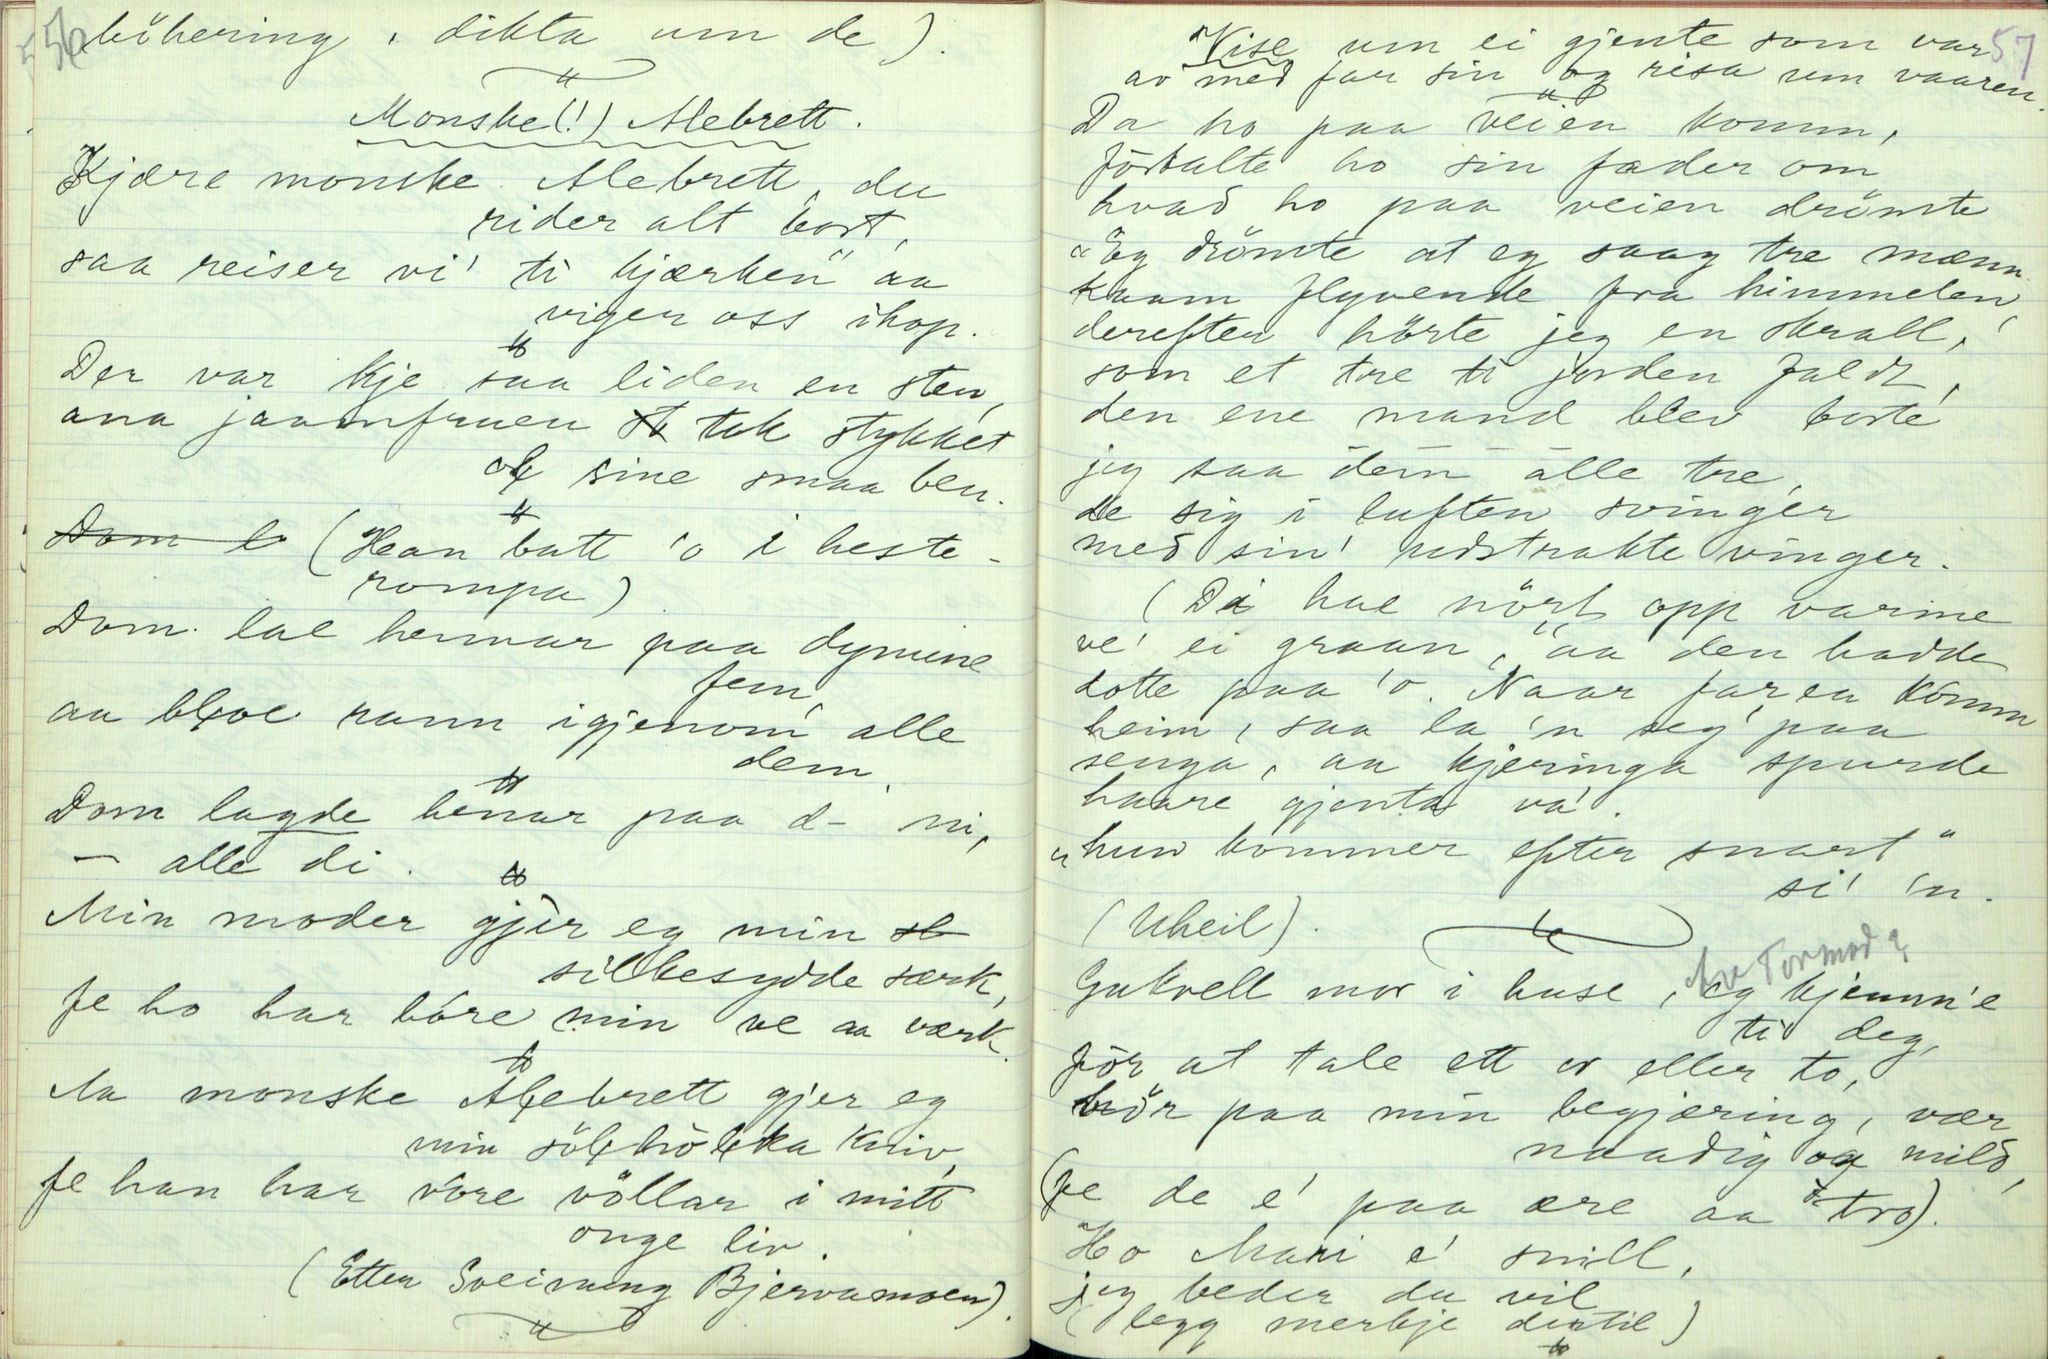 56
böhering, dikta um de).
Monske (!) Alebrett.
Kjære monske Alebrett, du
rider alt bort,
saa reiser vi' ti kjærken aa
viger oss ihop.
Der var kje saa liden en sten,
ana jaamfruen st tok stykket
af sine smaa ben.
Dom l (Hean batt 'o i heste-
rompa)
Dom lae hennar paa dynune
fem,
aa bloe rann igjenom alle
dem
Dom lagde hennar paa d- ni,
— alle di.
Min moder gjer eg min sl
silkesydde særk,
fe ho har bore min ve aa værk.
Aa monske Alebrett gjer eg
min sölhölka kniv,
fe han har vore völlar i mitt
onge liv.
(Etter Sveinung Bjervamoen).
57
Vise um ei gjente som var
av med far sin og reisa um vaaren.
Da ho paa veien komm,
fortalte ho sin fader om
hvad ho paa veien drömte
"Eg drömte at eg saag tre mænn
kaam flyvende fra himmelen,
derefter hörte jeg en skrall,
som et tre ti jorden faldt,
den ene mand blev borte
jeg saa dem alle tre,
de sig i luften svinger
med sin' udstrakte vinger.
(Di hae nört opp varme
ve' ei graan, aa den hadde
dotte paa 'o. Naar faren komm
heim, saa la 'n seg paa
senga, aa kjeringa spurde
haare gjenta va'.
"hun kommer efter snart"
si' 'n.
(Uheil).
Av Tormod?
Gukvell mor i huse, eg kjenn'e
ti deg,
för at tale ett or eller to,
hör paa min begjæring, vær
naadig og mild,
(fe de e' paa ære aa tro).
Ho Mari e' snill,
jeg beder du vil
(legg merkje dertil)